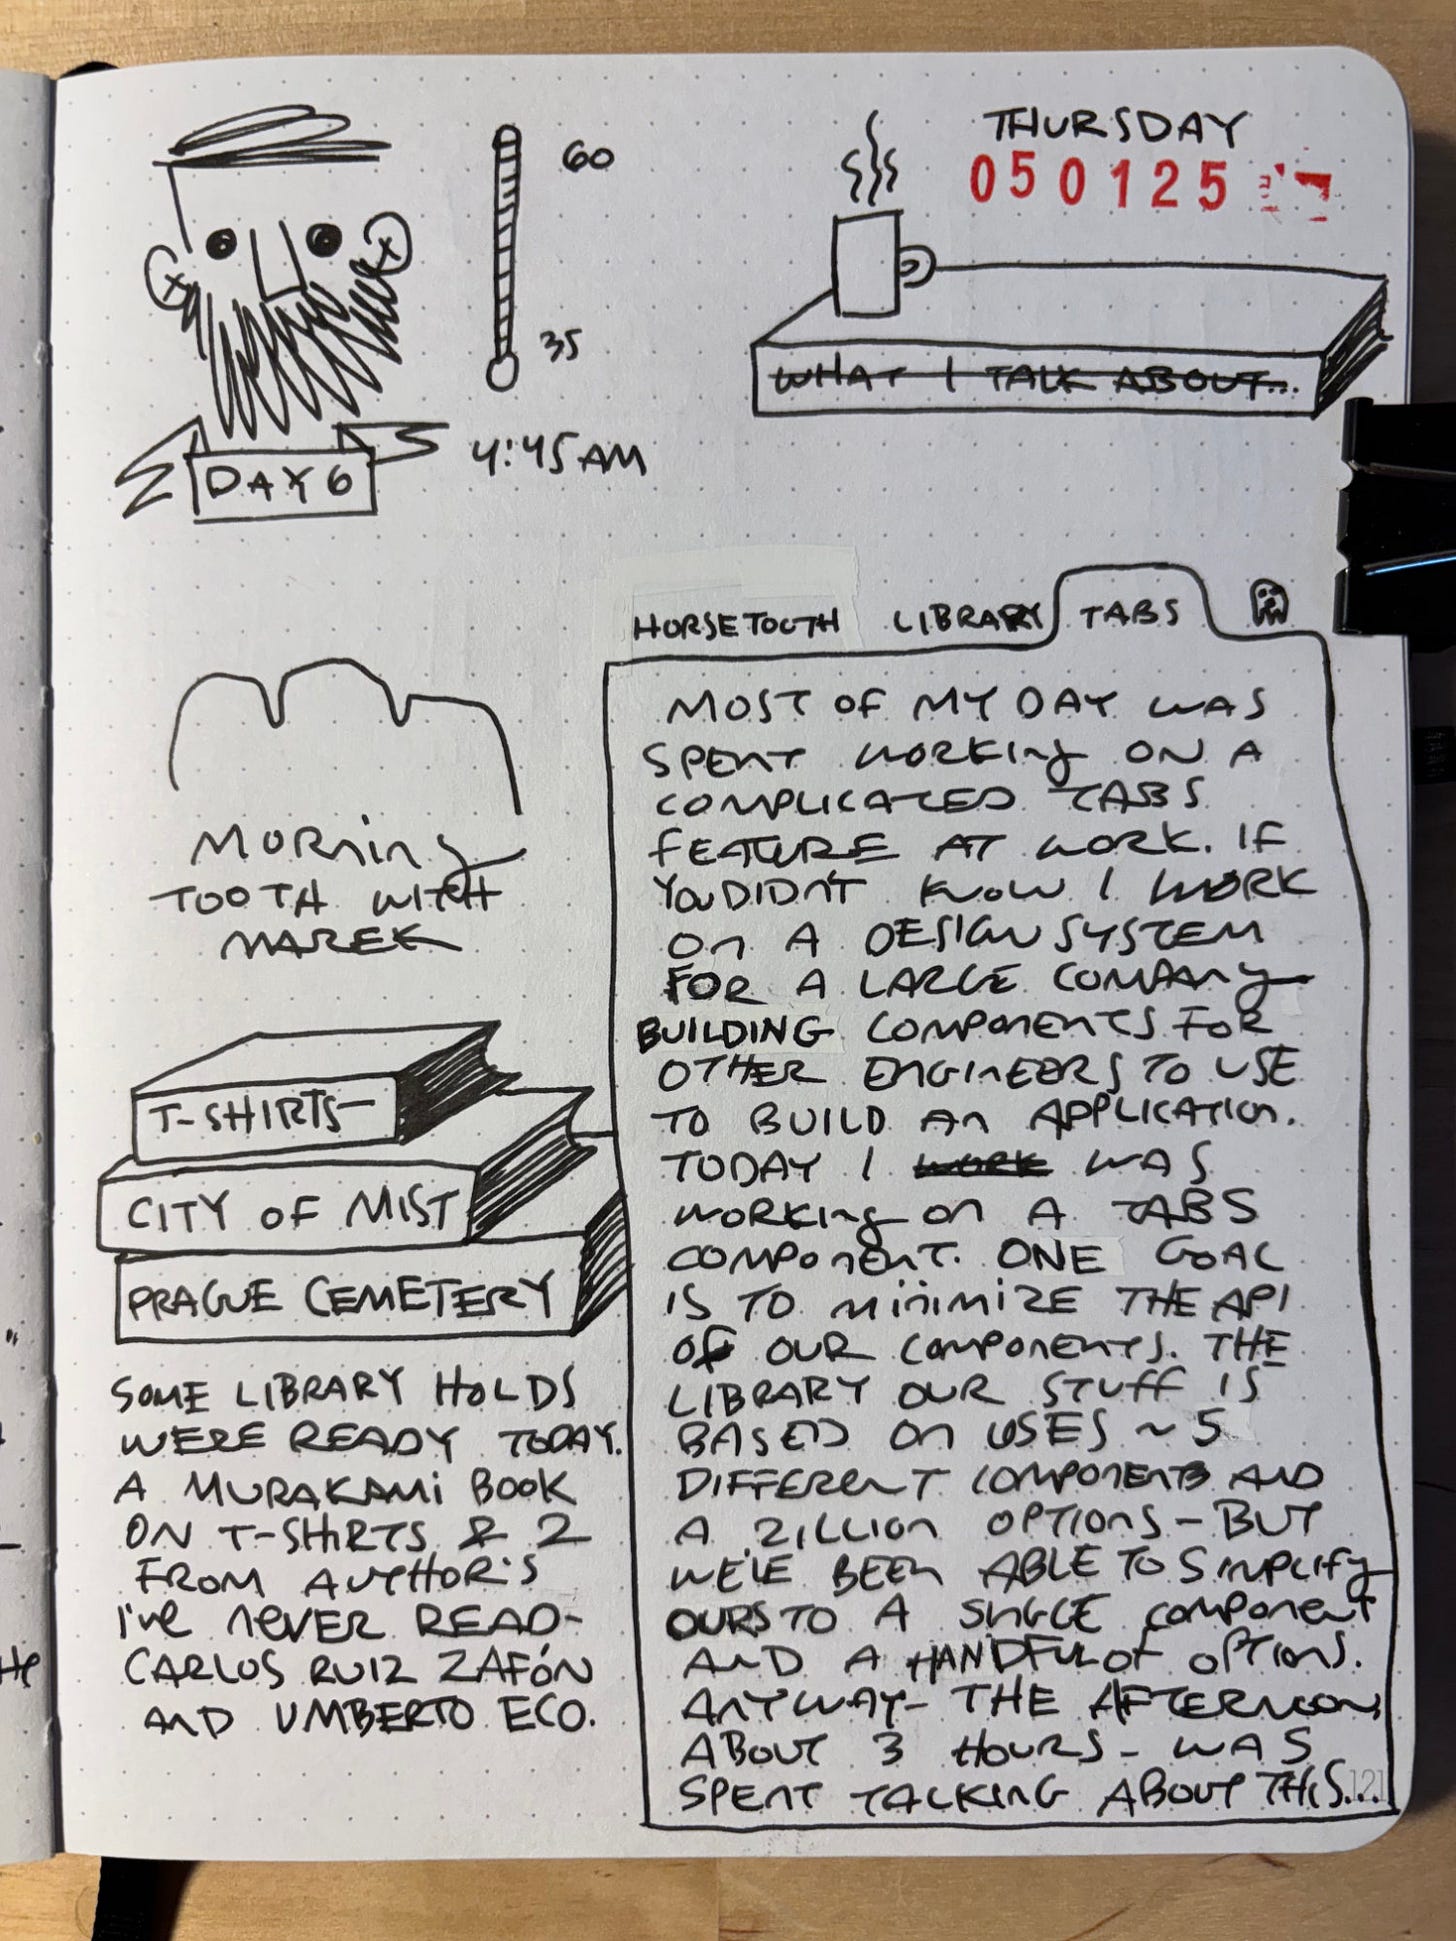 THURSDAY
050125
60
35
WHAT I TALK ABOUT...
DAY 6
4:45AM
HORSETOOTH LIBRARY TABS
MORNING
TOOTH WITH
MAREK
T-SHIRTS-
CITY OF MIST
PRAGUE CEMETERY
SOME LIBRARY HOLDS
WERE READY TODAY.
A MURAKAMI BOOK
ON T-SHIRTS & 2
FROM AUTHOR'S
I'VE NEVER READ-
CARLOS RUIZ ZAFÓN
AND UMBERTO ECO.
MOST OF MY DAY WAS
SPENT WORKING ON A
COMPLICATED TABS
FEATURE AT WORK. IF
YOU DIDN'T KNOW I WORK
ON A DESIGN SYSTEM
FOR A LARGE COMPANY
BUILDING COMPONENTS FOR
OTHER ENGINEERS TO USE
TO BUILD AN APPLICATION.
TODAY I WORK WAS
WORKING ON A TABS
COMPONENT. ONE GOAL
IS TO MINIMIZE THE API
OF OUR COMPONENTS. THE
LIBRARY OUR STUFF IS
BASED ON USES ~5
DIFFERENT COMPONENTS AND
A ZILLION OPTIONS - BUT
WE'VE BEEN ABLE TO SIMPLIFY
OURS TO A SINGLE COMPONENT
AND A HANDFUL OF OPTIONS.
ANYWAY- THE AFTERNOON,
ABOUT 3 HOURS - WAS
SPENT TALKING ABOUT THIS...
121